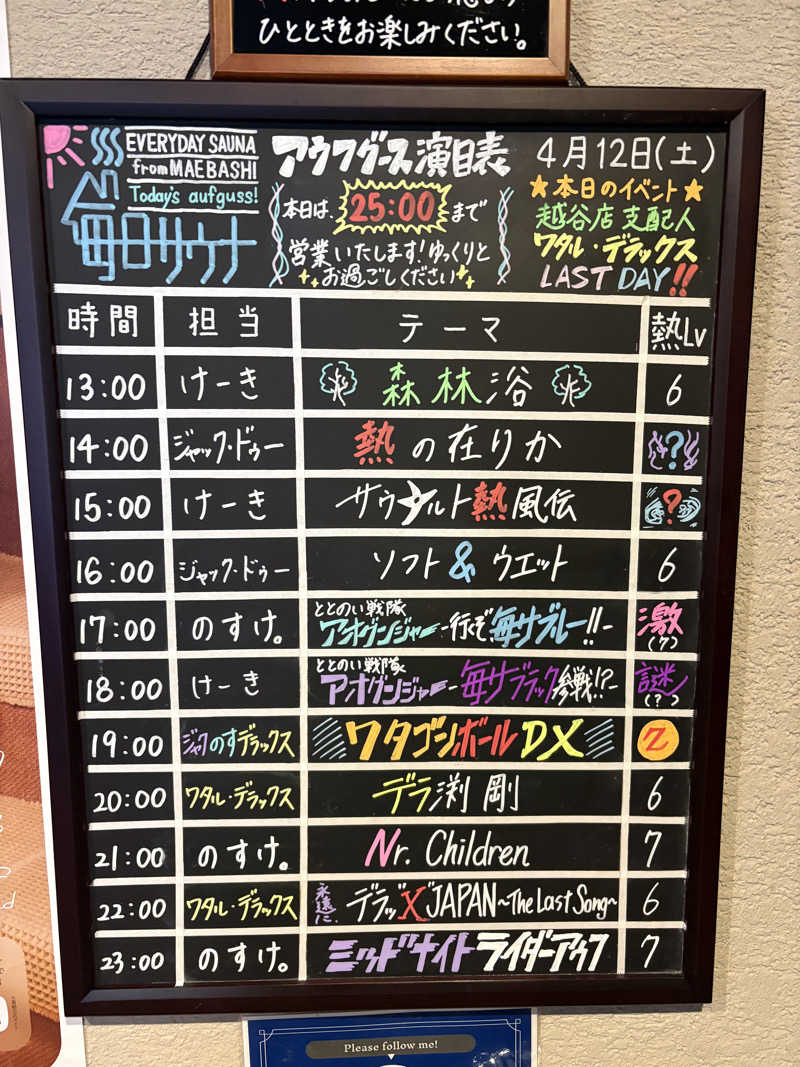 ひとときをお楽しみください。
EVERYDAY SAUNA
from MAEBASHI
Today's aufguss!
毎日サウナ
アウフグース演目表
本日は、25:00まで
営業いたします！ゆっくりと
お過ごしください
4月12日(土)
★本日のイベント★
越谷店 支配人
ワタル・デラックス
LAST DAY!!
時間 担当 テーマ 熱Lv
13:00 けーき 森林浴 6
14:00 ジャック・ドゥー 熱の在りか ?
15:00 けーき サウナルト熱風伝 ?
16:00 ジャック・ドゥー ソフト&ウエット 6
17:00 のすけ。 ととのい戦隊 アオグンジャー-行くぞ毎サブルー!!- 激(7)
18:00 けーき ととのい戦隊 アオグンジャー-毎サブラック参戦!?- 謎(?)
19:00 ジャクのすデラックス ワタゴンボールDX Z
20:00 ワタル・デラックス デラ渕剛 6
21:00 のすけ。 Nr. Children 7
22:00 ワタル・デラックス 永遠に、デラッ"X"JAPAN~The Last Song~ 6
23:00 のすけ。 ミッドナイトライダーアウフ 7
Please follow me!